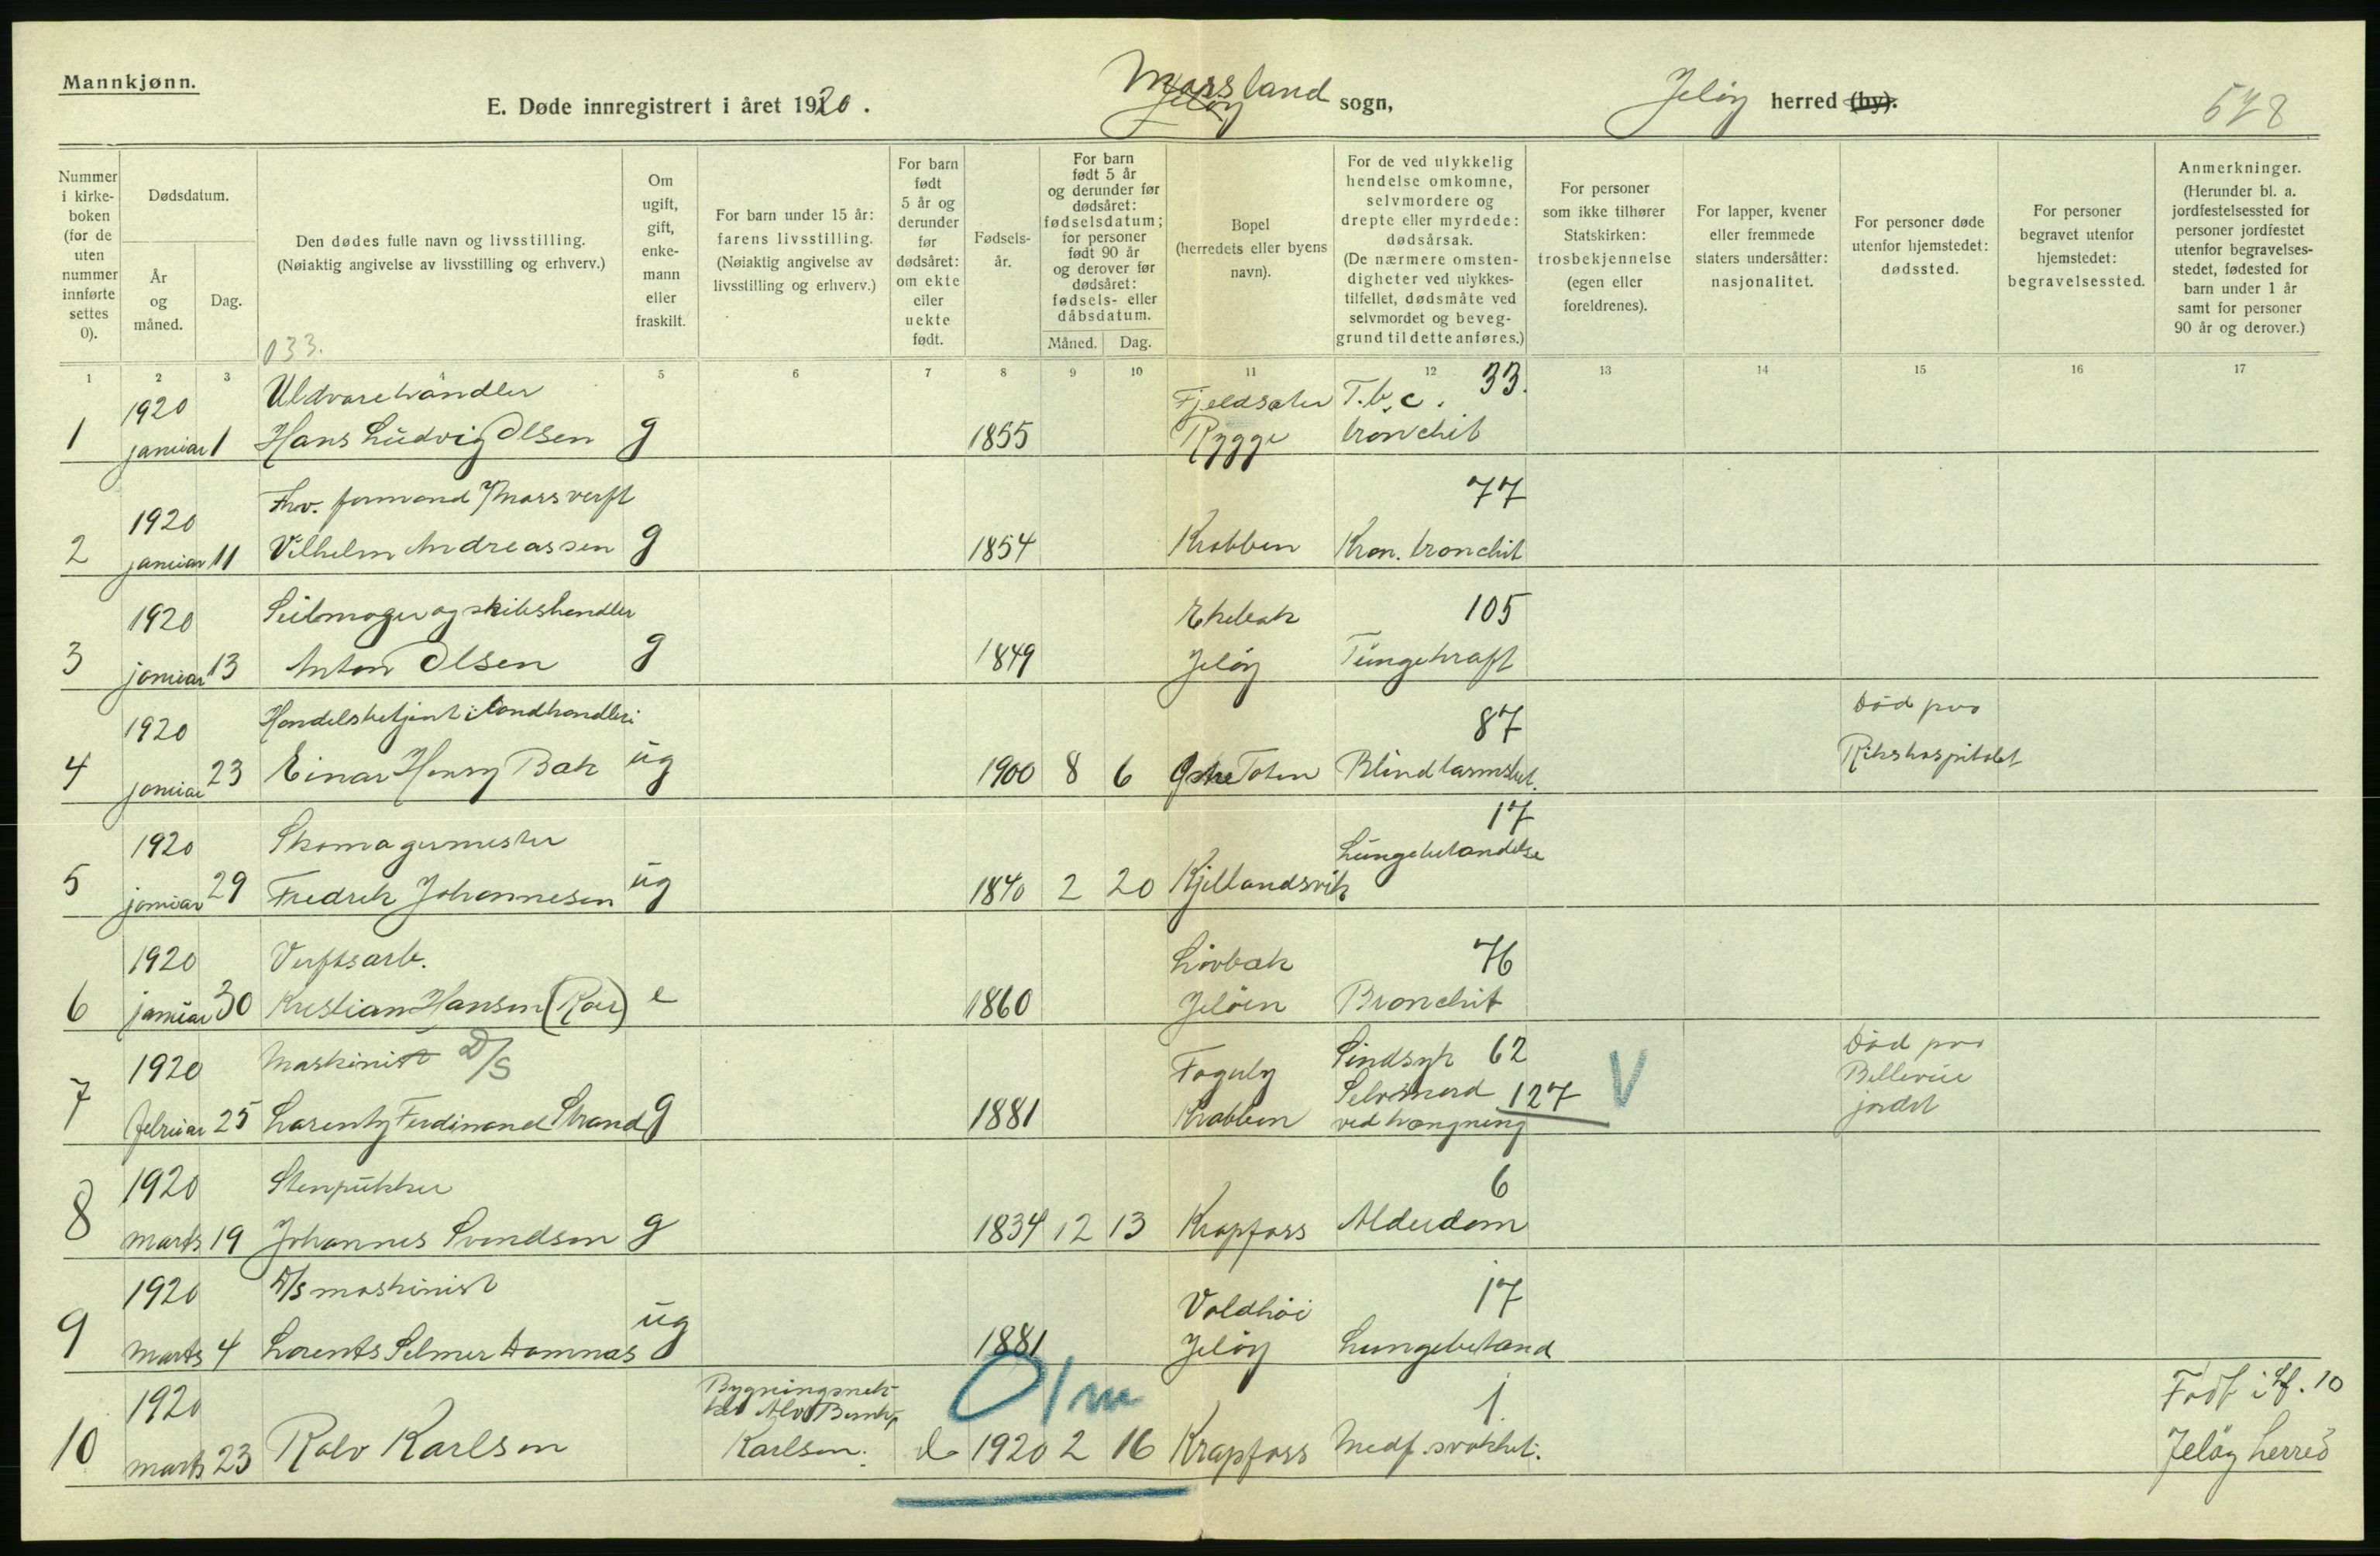 Mannkjønn.
E. Døde innregistrert i året 1920.
Mossland
Jeløy
sogn,
Jeløy herred (by).
528
Nummer i kirke- boken (for de uten nummer innførte settes 0).
Dødsdatum.
År og måned.
Dag.
Den dødes fulle navn og livsstilling.
(Nøiaktig angivelse av livsstilling og erhverv.)
033.
Om ugift, gift, enke- mann eller fraskilt.
For barn under 15 år: farens livsstilling.
(Nøiaktig angivelse av livsstilling og erhverv.)
For barn født 5 år og derunder før dødsåret: om ekte eller uekte født.
Fødsels- år.
For barn født 5 år og derunder før dødsåret: fødselsdatum; for personer født 90 år og derover før dødsåret: fødsels- eller dåbsdatum.
Måned. Dag.
Bopel (herredets eller byens navn).
For de ved ulykkelig hendelse omkomne, selvmordere og drepte eller myrdede: dødsårsak.
(De nærmere omsten- digheter ved ulykkes- tilfellet, dødsmåte ved selvmordet og beveg- grund til dette anføres.)
For personer som ikke tilhører Statskirken: trosbekjennelse (egen eller foreldrenes).
For lapper, kvener eller fremmede staters undersåtter: nasjonalitet.
For personer døde utenfor hjemstedet: dødssted.
For personer begravet utenfor hjemstedet: begravelsessted.
Anmerkninger.
(Herunder bl. a. jordfestelsessted for personer jordfestet utenfor begravelses- stedet, fødested for barn under 1 år samt for personer 90 år og derover.)
1 2 3 4 5 6 7 8 9 10 11 12 13 14 15 16 17
1920 Uldvarehandler Fjeldsæter T.b.c. 33.
1 januar 1 Hans Ludvig Olsen g 1855 Rygge bronchit
1920 Fhv. formand v/ Moss verft 77
2 januar 11 Vilhelm Andreassen g 1854 Krabben Kron. bronchit
1920 Seilmager og skibshandler Ekebæk 105
3 januar 13 Anton Olsen g 1849 Jeløy Tungekræft
1920 Handelsbetjent i landhandleri 87 Død paa
4 januar 23 Einar Henry Bak ug 1900 8 6 Østre Toten Blindtarmsbet. Rikshospitalet
1920 Skomagermester 17
Lungebetændelse
5 januar 29 Fredrik Johannesen ug 1840 2 20 Kjellandsvik
1920 Verftsarb. Løvbæk 76
6 januar 30 Kristian Hansen (Roer) e 1860 Jeløen Bronchit
1920 Maskinist D/S Fagerly Sindsyk 62 V Død paa
Selvmord 127 Bellevue
7 februar 25 Larentz Ferdinand Strand g 1881 Krabben ved hængning jordet
1920 Stenpukker 6
8 marts 19 Johannes Svendsen g 1834 12 13 Krapfoss Alderdom
1920 D/S maskinist Voldhøi 17
9 marts 4 Lorents Selmer Damnæs ug 1881 Jeløy Lungebetænd
0/m
1920 1. Født i
10
10 marts 23 Rolv Karlsen Karlsen. e 1920 2 16 Krapfoss Medf. svakhet. Jeløy herred